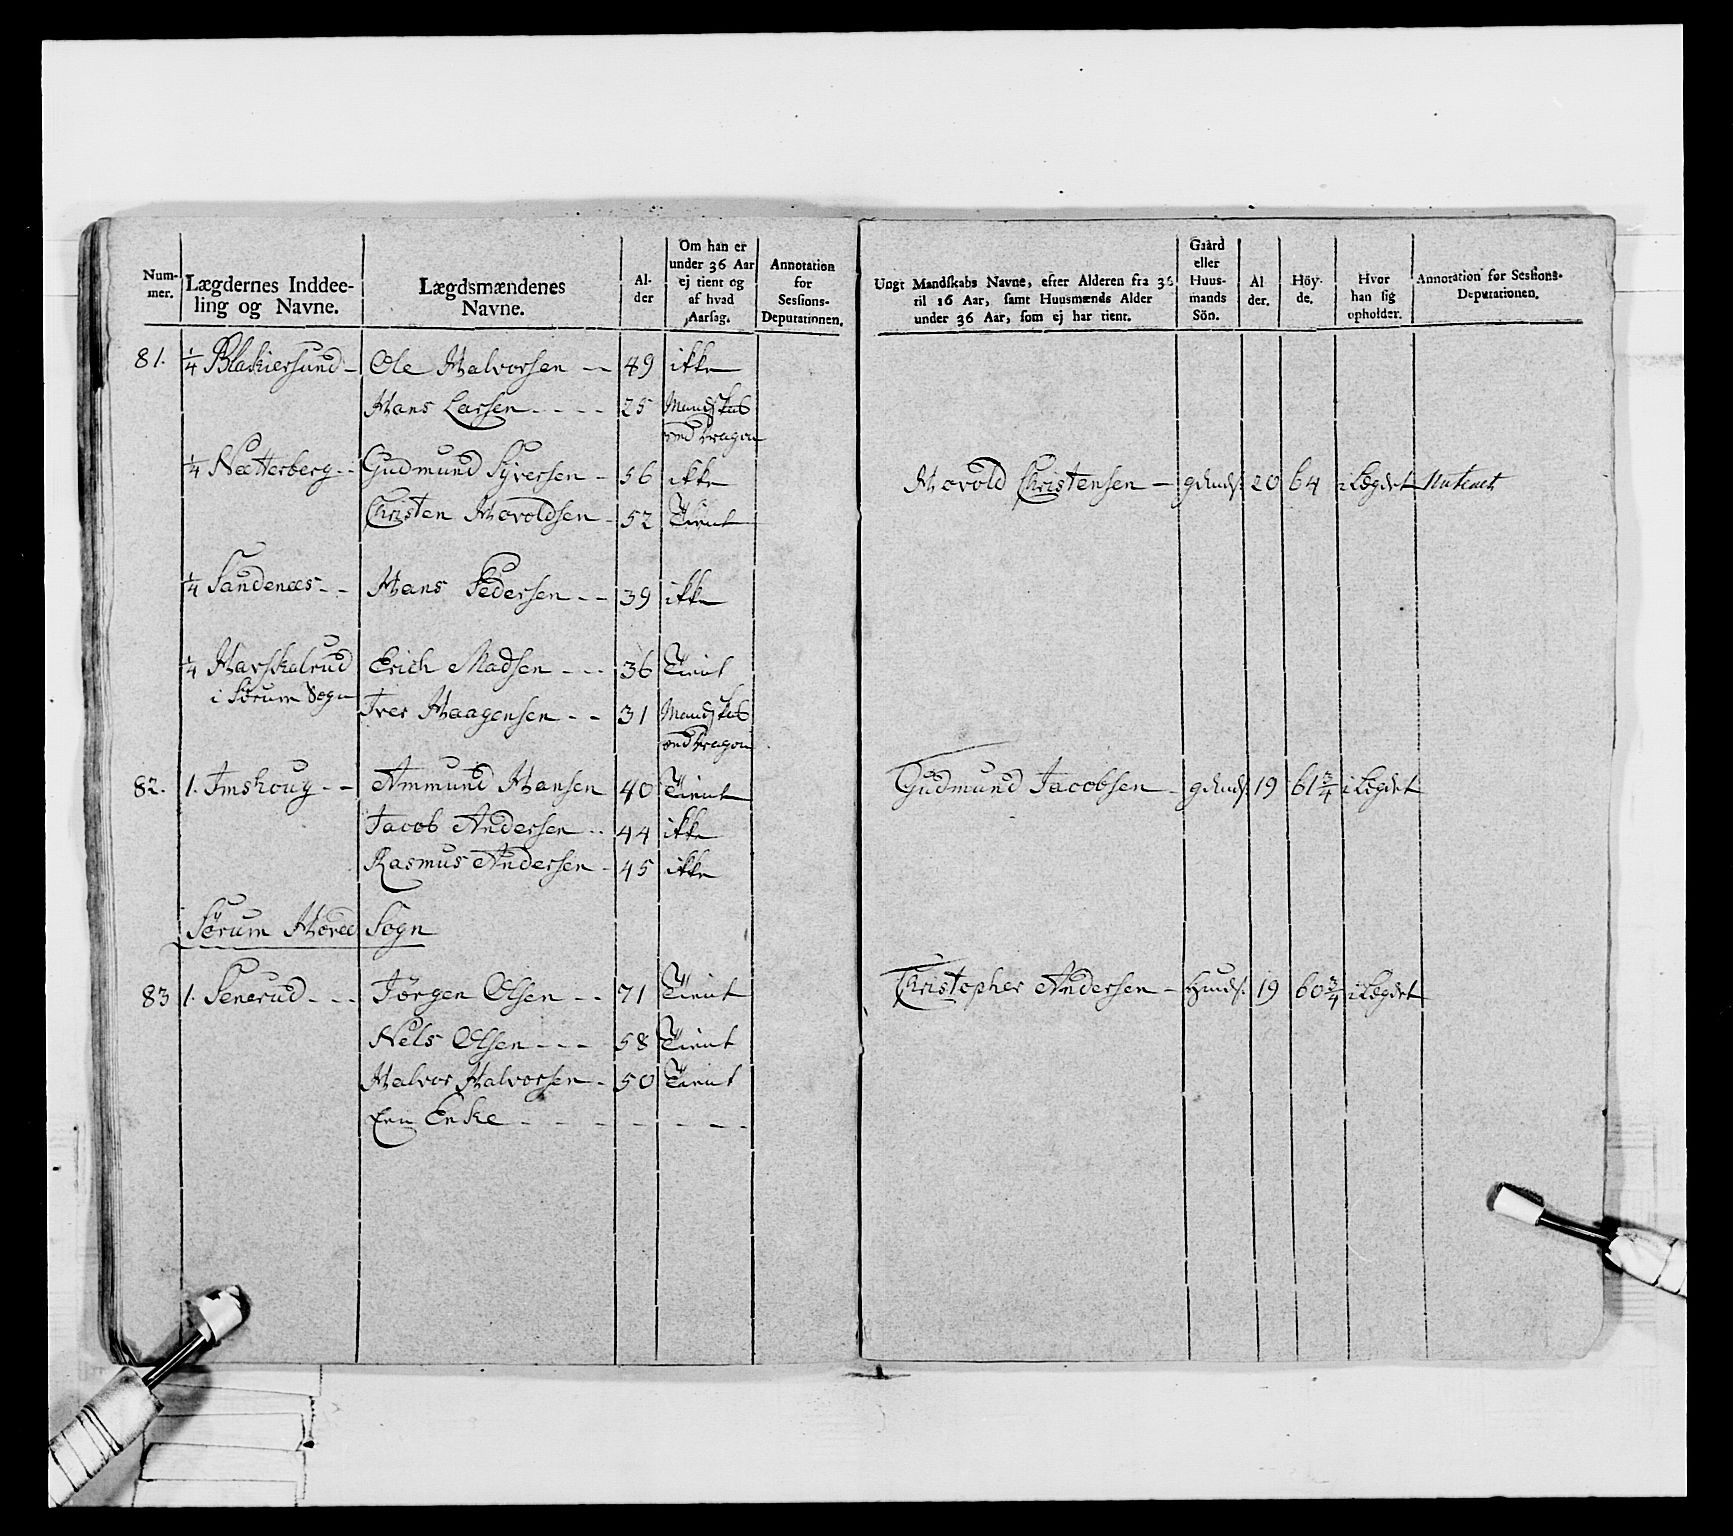 Num-
mer.
Lægdernes Inddee-
ling og Navne.
Lægdsmændenes
Navne.
Al-
der
Om han er
under 36 Aar
ej tient og
af hvad
Aarsag.
Annotation
for
Sessions-
Deputationen.
Ungt Mandskabs Navne, efter Alderen fra 36
til 16 Aar, samt Huusmænds Alder
under 36 Aar, som ej har tient.
Gaard
eller
Huus-
mands
Sön.
Al
der.
Höy-
de.
Hvor
han sig
opholder.
Annotation for Sessions-
Deputationen.
81. 1/4 Blakiersund - Ole Halvorsen -- 49 ikke
Hans Larsen ---- 25 Mandskab
ved Dragon
1/4 Netterberg -- Gudmund Syversen - 56 ikke Harold Christensen - 20 64 i Lægdet
Christen Haroldsen - 52 Tient
1/4 Sandenæs -- Hans Pedersen -- 39 ikke
1/4 Harskalrud Erich Madsen --- 36 Tient
i Sørum Sogn
Iver Haagensen -- 31 Mandskab
ved Dragon
82. 1. Imshoug -- Ammund Hansen 40 Tient Gudmund Jacobsen - 19 61 3/4 i Legdet
Jacob Andersen -- 44 ikke
Rasmus Andersen - 45 ikke
Sørum Hoved Sogn
83 1. Senerud --- Jørgen Olsen -- 71 Tient Christopher Andersen - 19 60 3/4 i Lægdet
Nels Olsen --- 58 Tient
Halvor Halvorsen - 50 Tient
Een Enke - - - - - - -